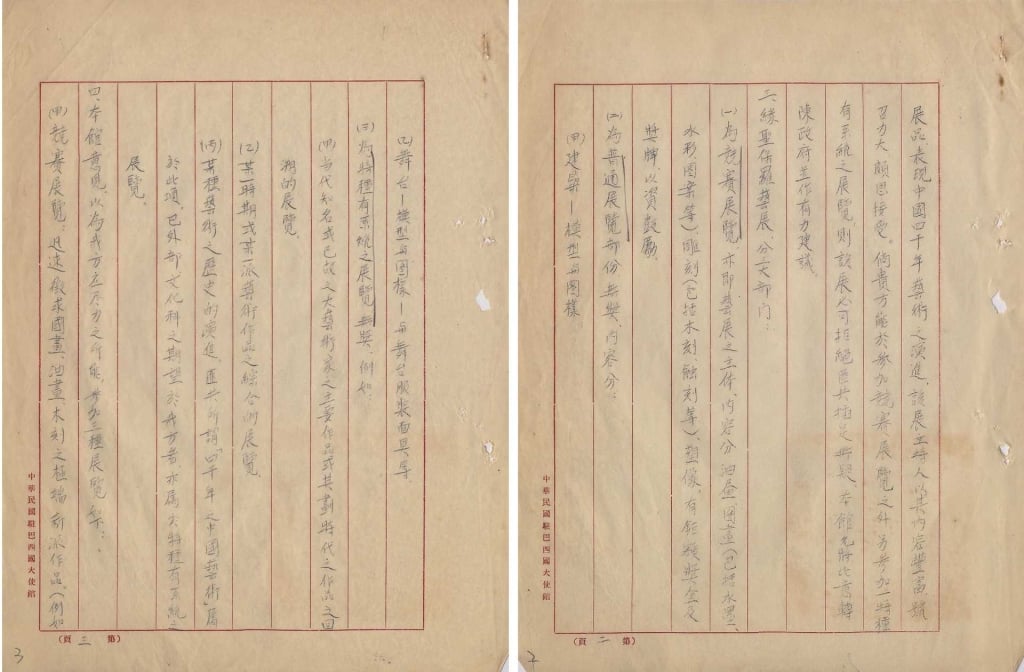 展品表現中國四千年藝術之演進，該展主持人以其內容豐富，號
召力大，頗思接受。倘貴方能於參加競賽展覽之外，另參加一特種
有系統之展覽，則該展必可拒絕匪共插足無疑。本館允將此意轉
陳政府並作有力建議。
三、緣聖保羅藝展，分三大部門：
(一)為競賽展覽，亦即藝展之主體，內容分油畫、國畫（包括水墨、
水彩、圖案等）、雕刻（包括木刻、蝕刻等）、塑像，有鉅獎獎金及
獎牌，以資鼓勵。
(二)為普通展覽部份無獎，內容分：
(甲)建築—模型与圖樣
第二頁
中華民國駐巴西國大使館
2
(乙)舞台—模型与圖樣—与舞台服裝面具等。
(三)為特種有系統之展覽無獎，例如：
(甲)當代知名或已故之大藝術家之主要作品或其劃時代之作品之回
溯的展覽。
(乙)某一時期或某一派藝術作品之綜合的展覽。
(丙)某種藝術之歷史的演進，匪共所謂「四千年之中國藝術」屬
於此項，巴外部文化科之期望於我方者，亦屬於特種有系統之
展覽。
四、本館意見，以為我方應尽力之所能，參加三種展覽：
(甲)競賽展覽：迅速徵求國畫、油畫、木刻之極端新派作品，（例如
第三頁
中華民國駐巴西國大使館
3